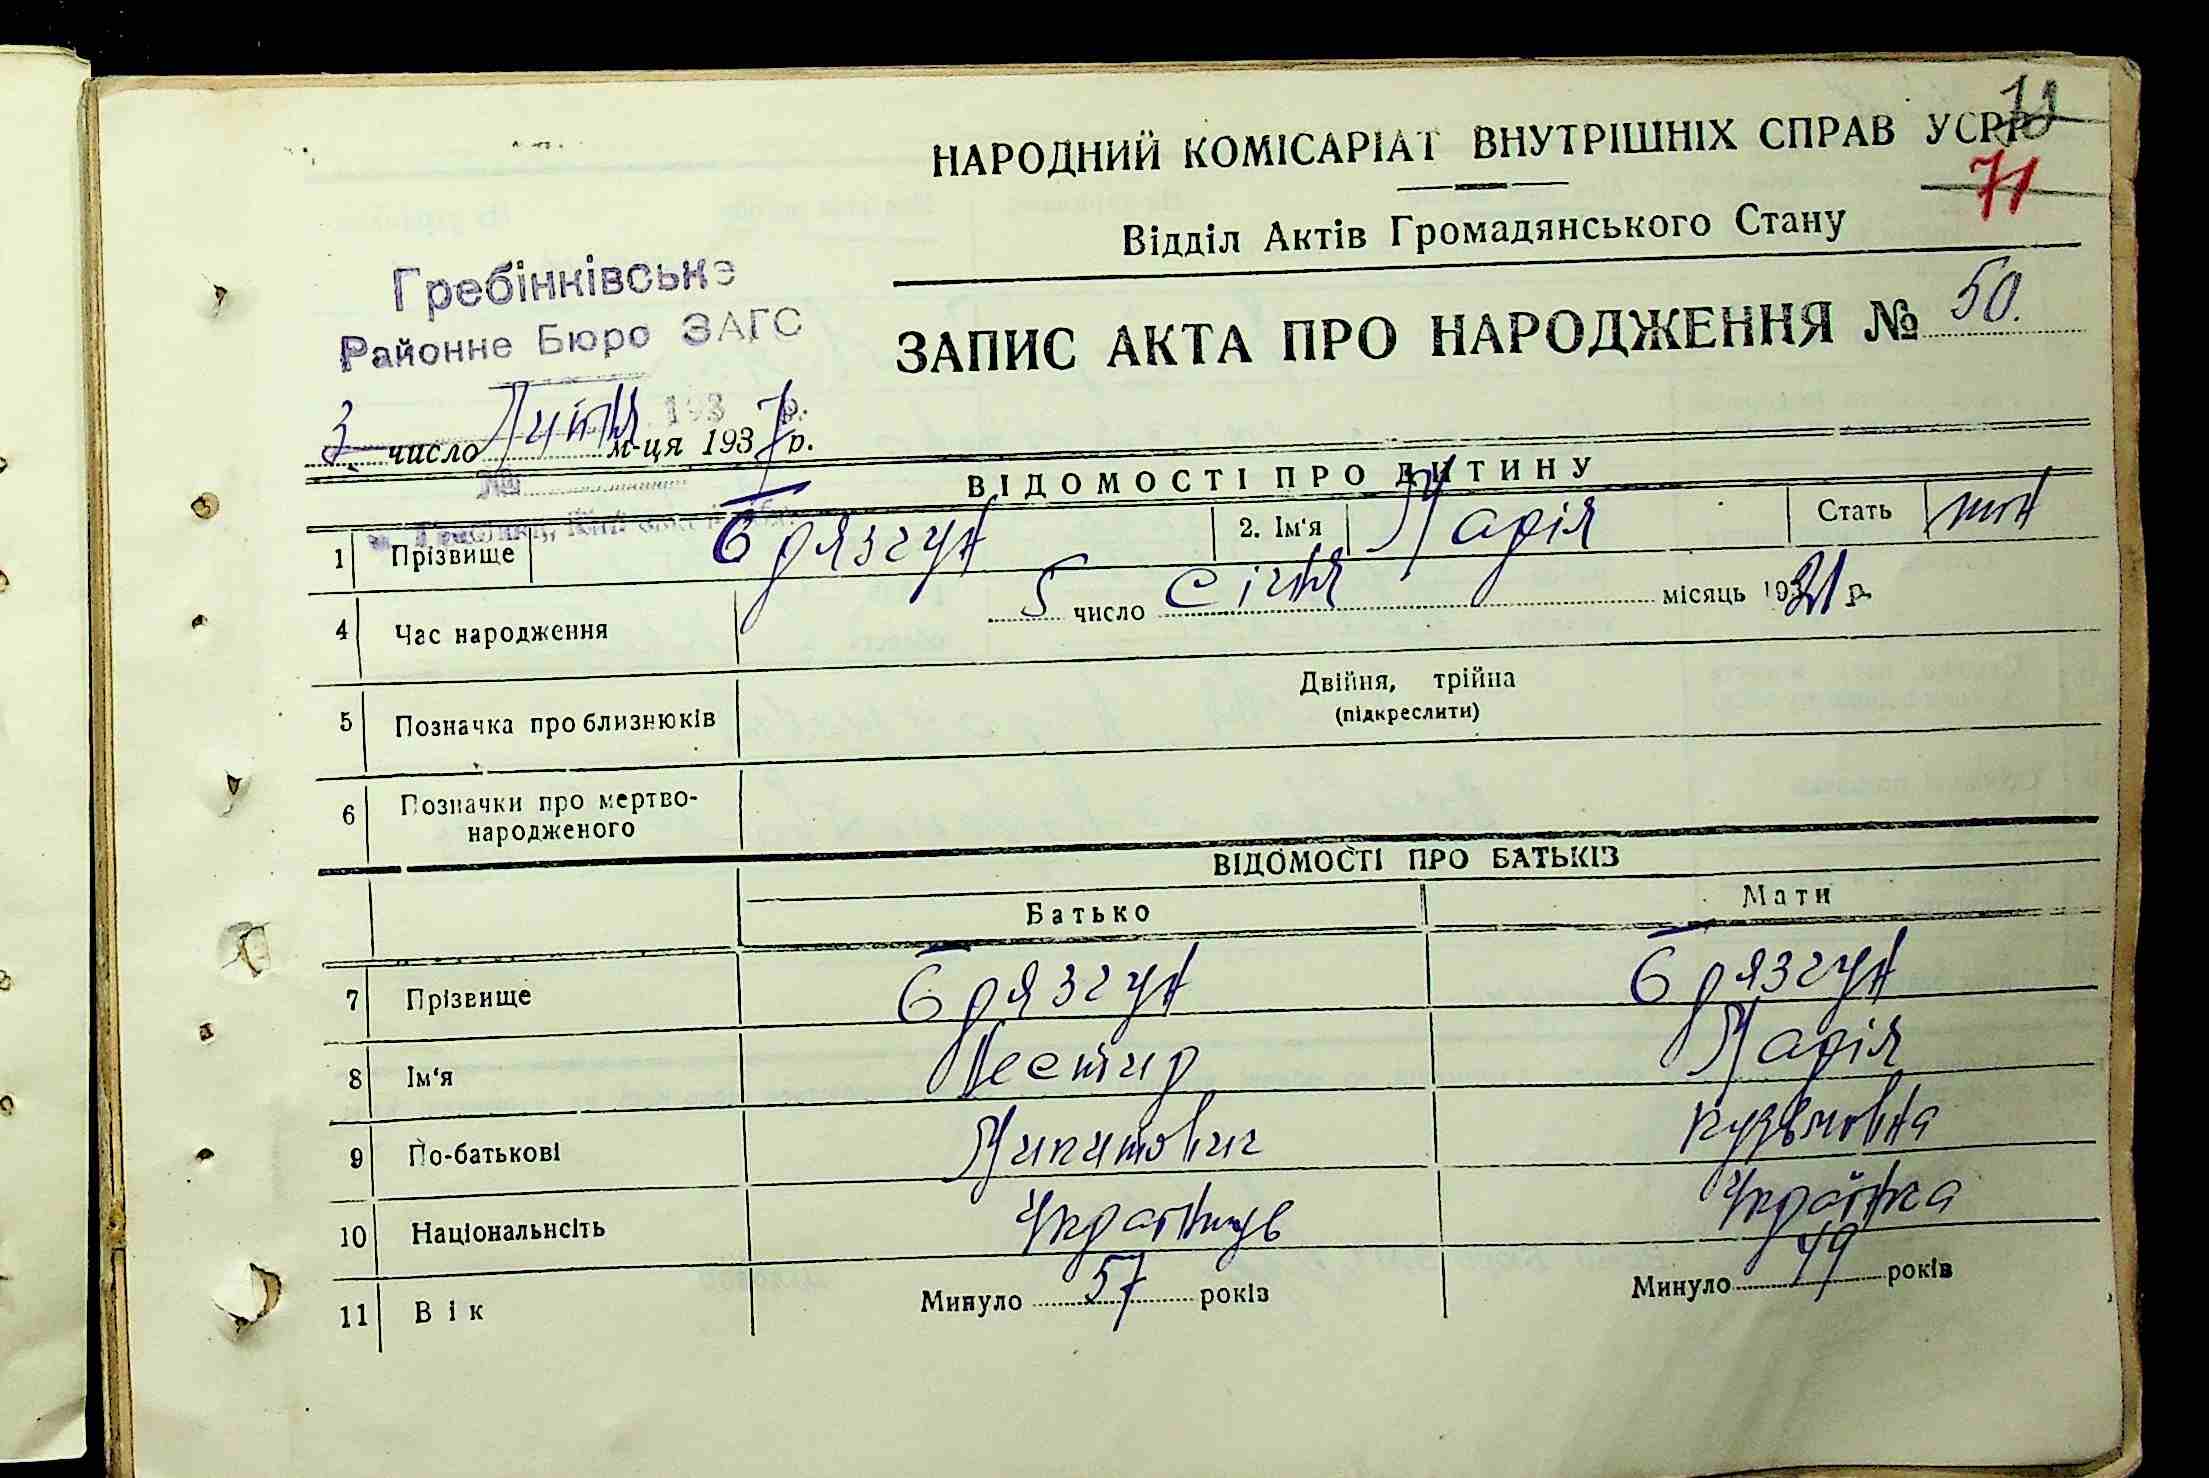 71
НАРОДНИЙ КОМІСАРІАТ ВНУТРІШНІХ СПРАВ УСРР
71
Відділ Актів Громадянського Стану
Гребінківське
Районне Бюро ЗАГС
ЗАПИС АКТА ПРО НАРОДЖЕННЯ № 50.
193 р.
3 число Липня м-ця 1937 р.
№
ВІДОМОСТІ ПРО ДИТИНУ
1 Прізвище Брязгун 2. Ім'я Марія Стать жін
4 Час народження 5 число січня місяць 1921 р.
5 Позначка про близнюків Двійня, трійна
(підкреслити)
6 Позначки про мертво-
народженого
ВІДОМОСТІ ПРО БАТЬКІВ
Батько Мати
7 Прізвище Брязгун Брязгун
8 Ім'я Нестир Марія
9 По-батькові Микитович Кузьмовна
10 Національнсіть Українцує Українка
11 Вік Минуло 57 років Минуло 49 років